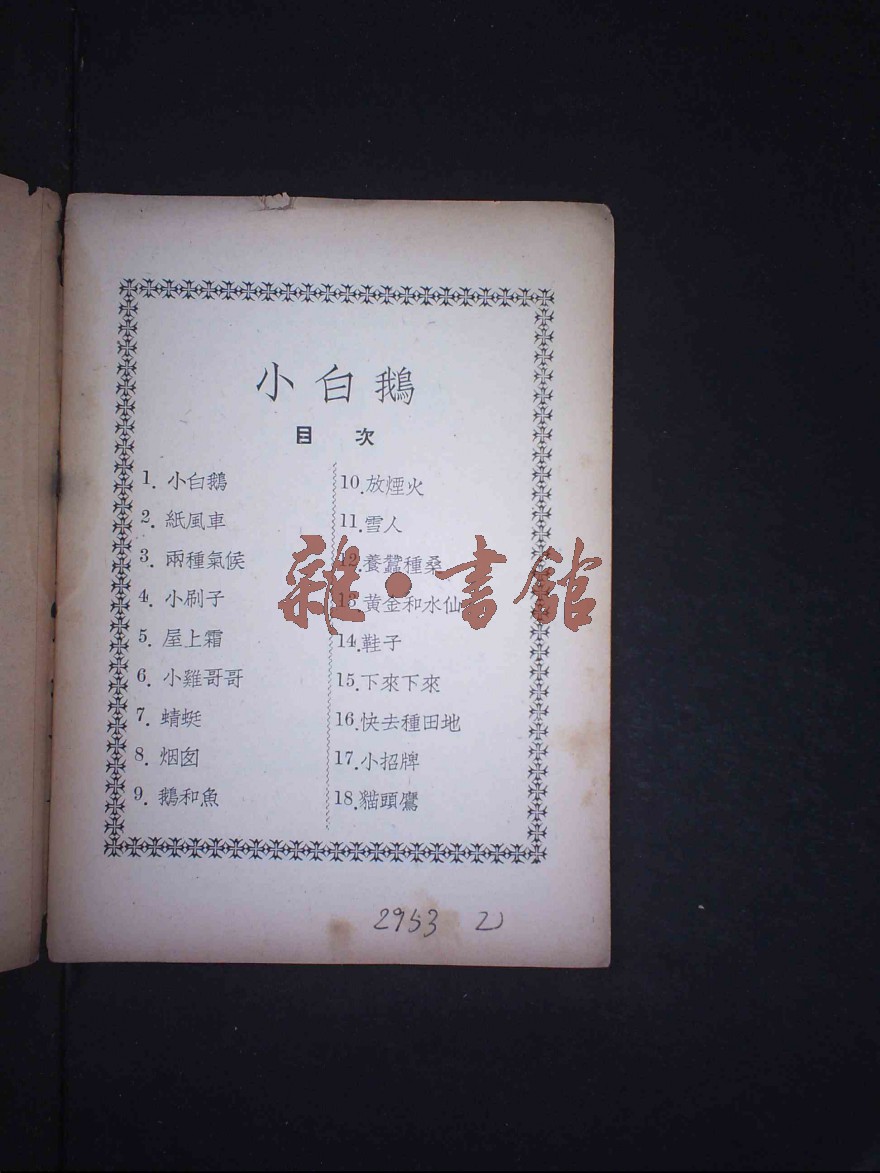 小白鵝
目次
1. 小白鵝
2. 紙風車
3. 兩種氣候
4. 小刷子
5. 屋上霜
6. 小雞哥哥
7. 蜻蜓
8. 烟囱
9. 鵝和魚
10. 放煙火
11. 雪人
12. 養蠶種桑
13. 黃金和水仙
14. 鞋子
15. 下來下來
16. 快去種田地
17. 小招牌
18. 貓頭鷹
雜·書館
2953 2